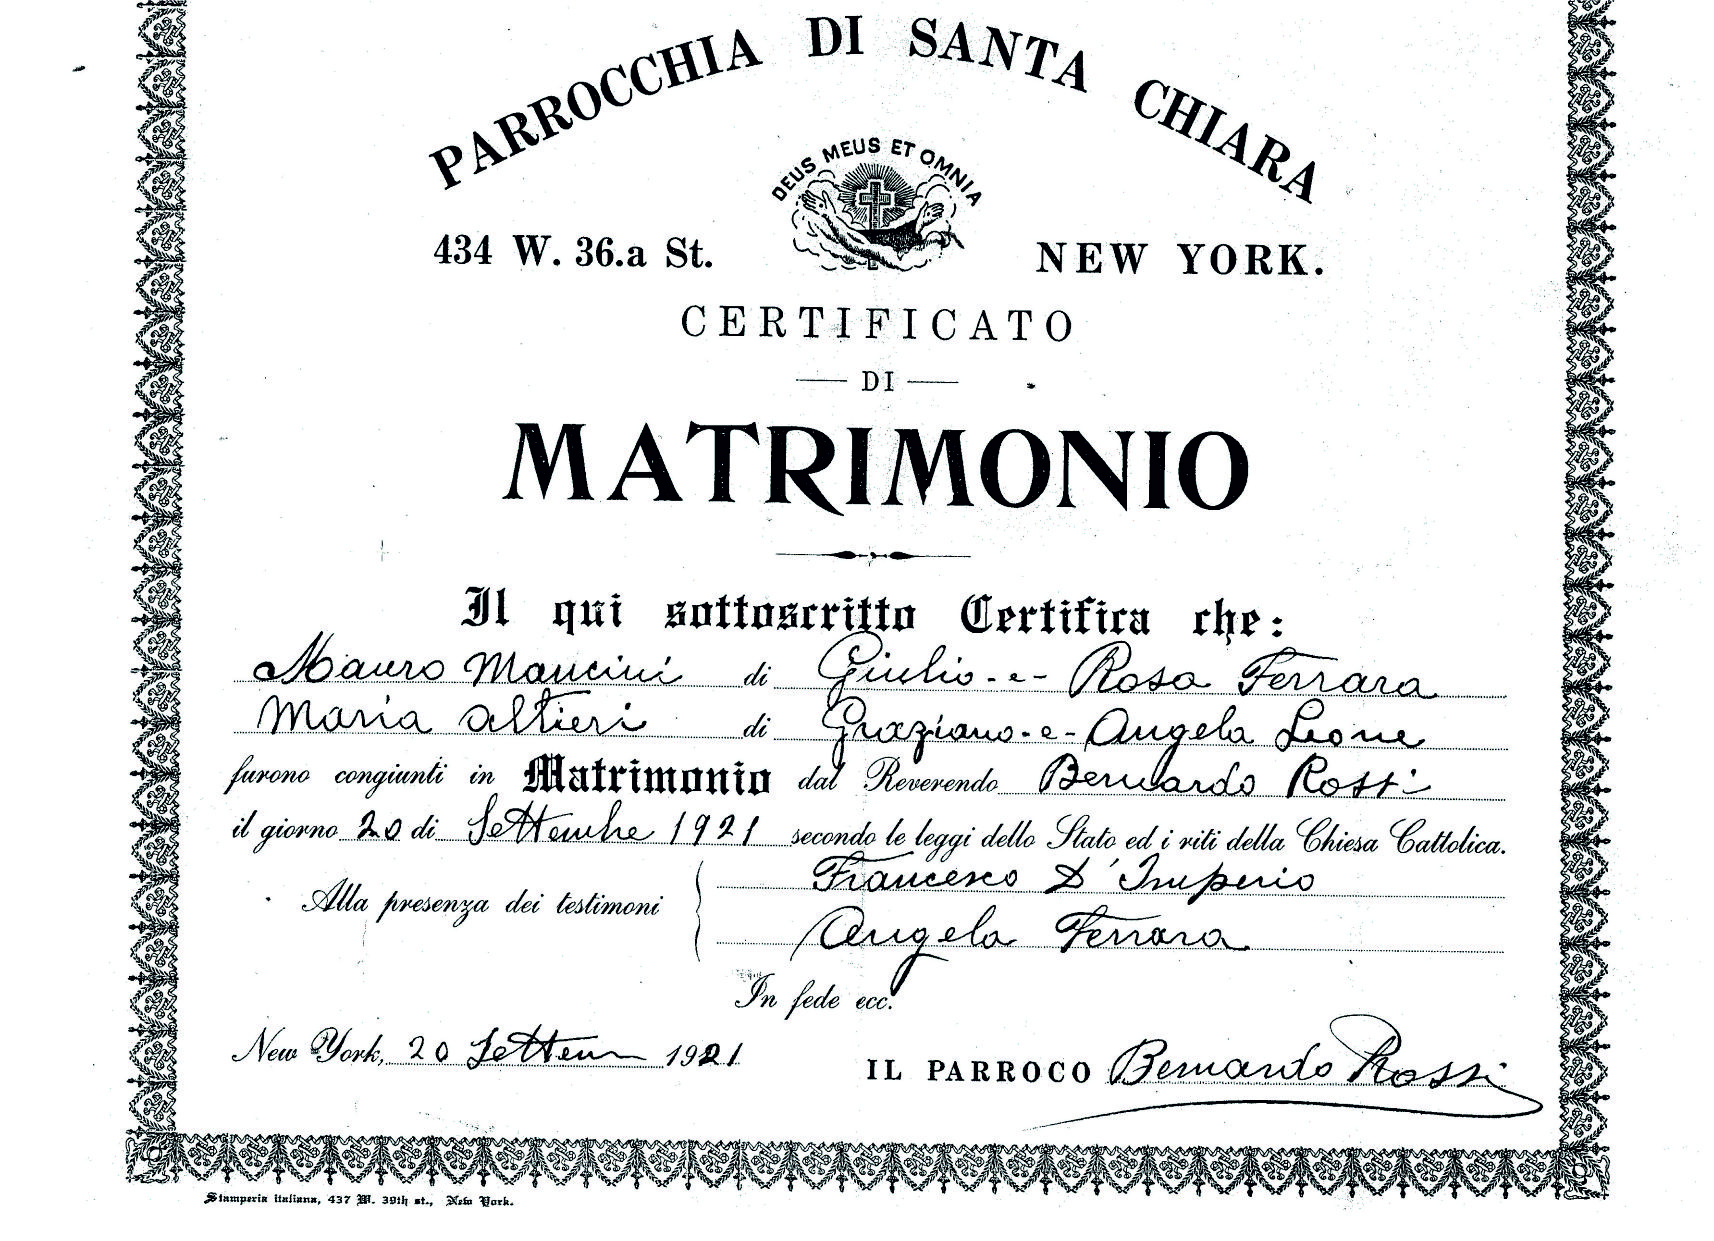 PARROCCHIA DI SANTA CHIARA
DEUS MEUS ET OMNIA
434 W. 36.a St. NEW YORK.
CERTIFICATO
DI
MATRIMONIO
Il qui sottoscritto Certifica che:
Mauro Mancini di Giulio - e - Rosa Ferrara
Maria Altieri di Graziano - e - Angela Leone
furono congiunti in Matrimonio dal Reverendo Bernardo Rossi
il giorno 20 di Settembre 1921 secondo le leggi dello Stato ed i riti della Chiesa Cattolica.
Alla presenza dei testimoni
Francesco D'Imperio
Angela Ferrara
In fede ecc.
New York, 20 Settem 1921
IL PARROCO Bernardo Rossi
Stamperia italiana, 437 W. 39th st., New York.